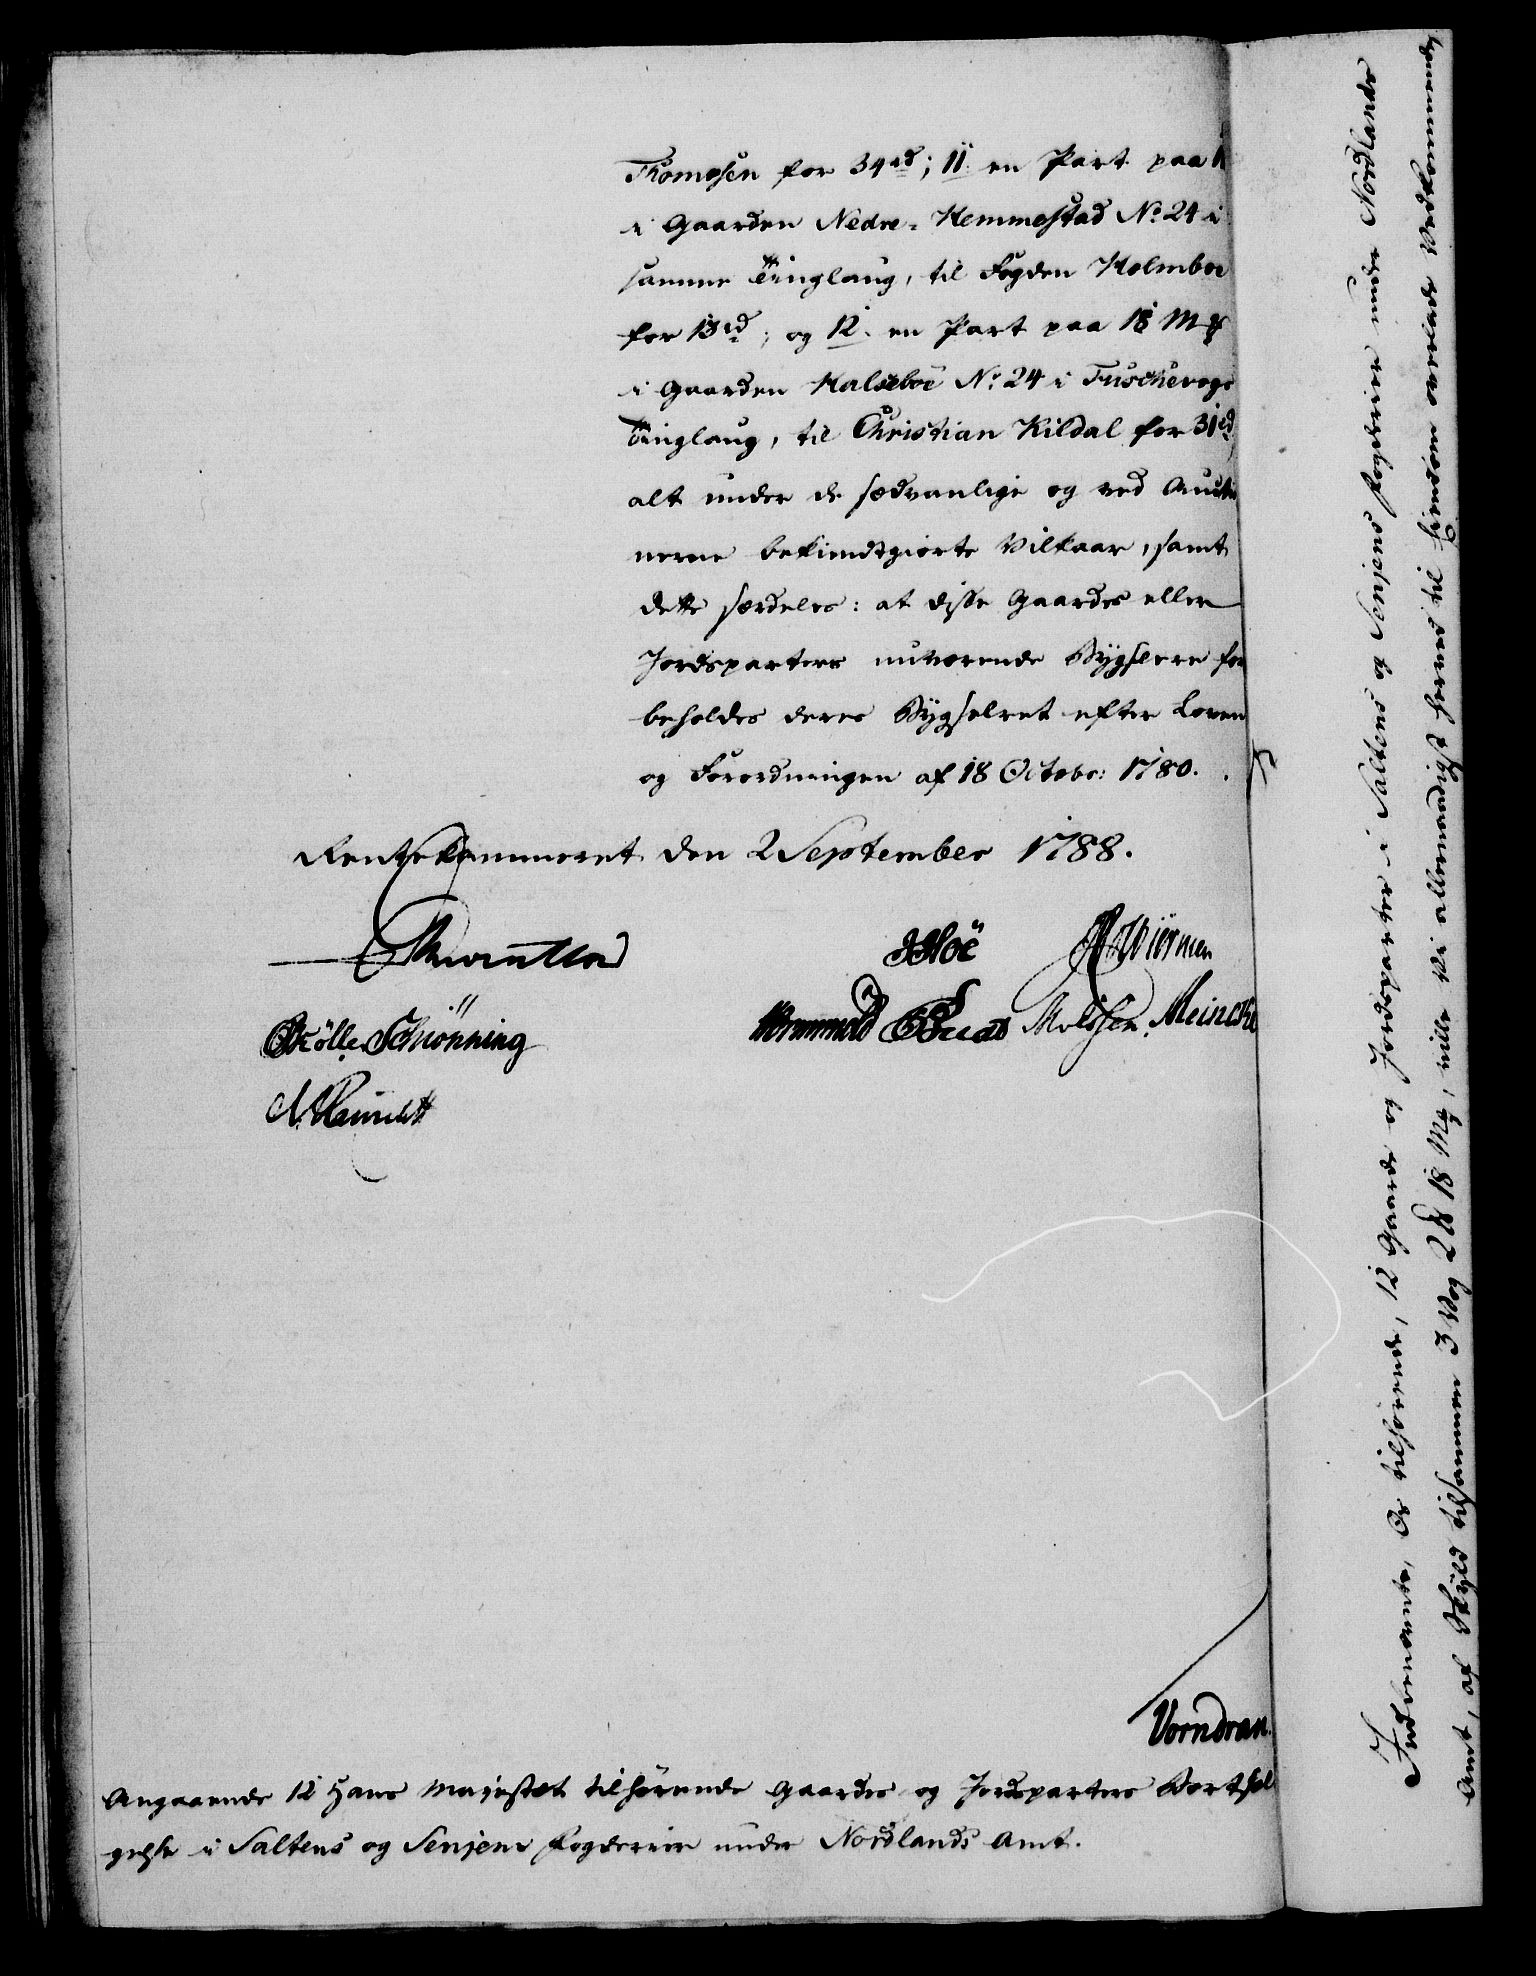 Thomesen for 34 rd; 11 en Part paa
i Gaarden Nedre-Hemmestad No 24 i
samme Tinglaug, til Fogden Holmboe
for 13 rd; og 12. en Part paa 18 Mk
i Gaarden Halseboe No 24 i
Tinglaug, til Christian Kildal for 31 rd
alt under de sædvanlige og ved Auctio
nerne bekiendtgiorte Vilkaar, samt
dette særdeles: at disse Gaardes eller
Jordsparters nuværende Bygslere for
beholdes deres Bygselret efter Loven
og Forordningen af 18 Octobr: 1780.
Rentekammeret den 2 September 1788.
JHoë
Schiönning Meincke
Vorndran.
Angaaende 12 Hans Majestæt tilhørende Gaardes og Jordsparters Bortsæl
gelse i Saltens og Senjens Fogderier under Nordlands Amt.
Indbenævnte, Os tilhørende, 12 Gaarde og Jordsparter i Saltens og Senjens Fogderier under Nordlands
Amt, af Skyld tilsammen 3 Vog 2 18 Mk, ville Vi allernaadigst herved til Eiendom overlade Vedkommende